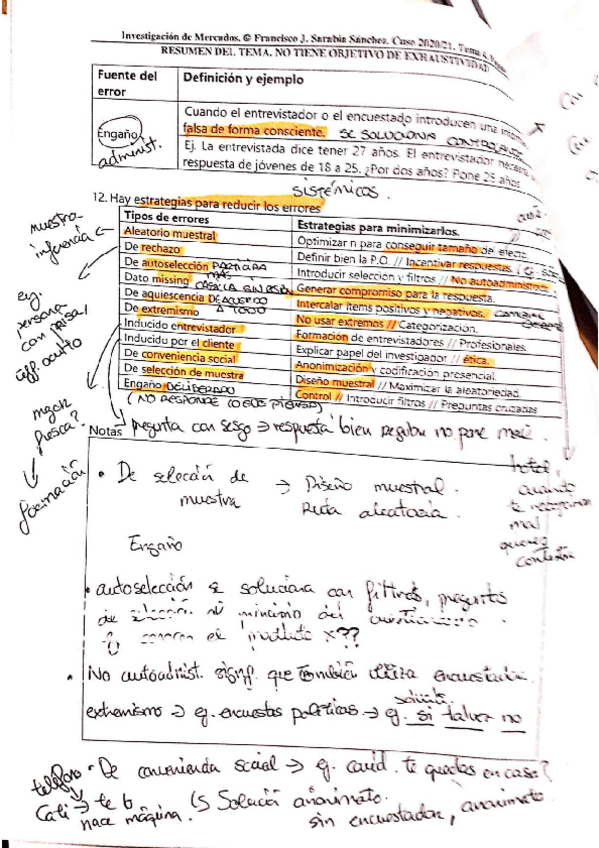 Investigación de Mercados. © Francisco J. Sarabia Sánchez. Curso 2020/21. Tema
RESUMEN DEL TEMA. NO TIENE OBJETIVO DE EXHAUSTIVIDAD
Fuente del error
Definición y ejemplo
Engaño
administ.
Cuando el entrevistador o el encuestado introducen una
falsa de forma consciente. SE SOLUCIONA
Ej. La entrevistada dice tener 27 años. El entrevistador
respuesta de jóvenes de 18 a 25. ¿Por dos años? Pone 25 años
SISTÉMICOS.
12. Hay estrategias para reducir los errores
Tipos de errores
Estrategias para minimizarlos.
Aleatorio muestral
Optimizar n para conseguir tamaño de efecto.
De rechazo
Definir bien la P.O. // Incentivar respuestas.
De autoselección PARTICIPA MÁS
Introducir selección y filtros // No autoadministrados
Dato missing
Generar compromiso para la respuesta.
De aquiescencia DE ACUERDO A TODO
Intercalar ítems positivos y negativos.
De extremismo
No usar extremos // Categorización.
Inducido entrevistador
Formación de entrevistadores // Profesionales.
Inducido por el cliente
Explicar papel del investigador // ética.
De conveniencia social
Anonimización y codificación presencial.
De selección de muestra
Diseño muestral // Maximizar la aleatoriedad.
Engaño DELIBERADO
Control // Introducir filtros // Preguntas cruzadas
(NO RESPONDE LO QUE PIENSA)
muestra
inferencia
eg.
persona
con prisa,
eff. oculto
formación
Notas pregunta con sesgo ⇒ respuesta bien
• De selección de muestra → Diseño muestral.
Ruta aleatoria.
Engaño
• autoselección se soluciona con filtros, preguntas
de selección al principio del cuestionario
el producto x??
• No autoadmist. signif. que también utiliza encuestador.
extremismo ⇒ eg. encuestas políticas → eg. si talvez no
hotel,
cuando
te
mal
contestar
teléfono
• De convenienda social ⇒ eg. covid. te quedas en casa?
Cati → te lo
hace máquina.
↳ Solución anonimato.
sin encuestador, anonimato